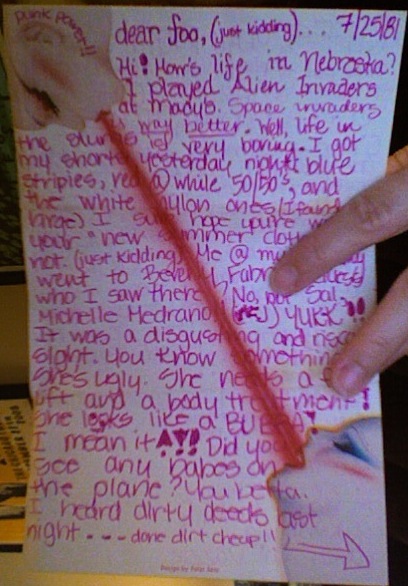 punk power!!
dear foo, (just kidding)... 7/25/81
Hi! How's life in Nebraska?
I played Alien Invaders
at Macy's. Space invaders
is way better. Well, life in
the slums is very boring. I got
my shorts yesterday night! blue
stripies, red @ while 50/50's, and
the white nylon ones (I found
hope you're
your "new summer
not. (just kidding) Me @ my
went to Beverly Fabri
who I saw there, No, not Sal,
Michelle Medrano! YUKK!!
It was a disgusting and
sight. You know something
She's ugly. She needs a
lift and a body treatment!
She looks like a BUBBA!
I mean it!! Did you
see any babes on
the plane? You betta.
I heard dirty deeds last
night --- done dirt cheap!!
Design by